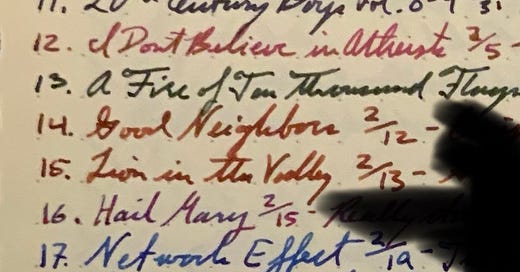 11. 20th Century Boys Vol.
12. I Dont Believe in Atheists 2/5 -
13. A Fire of Ten Thousand
14. Good Neighbors 2/12 -
15. Lion in the Valley 2/13 -
16. Hail Mary 2/15 - Really
17. Network Effect 2/19 -